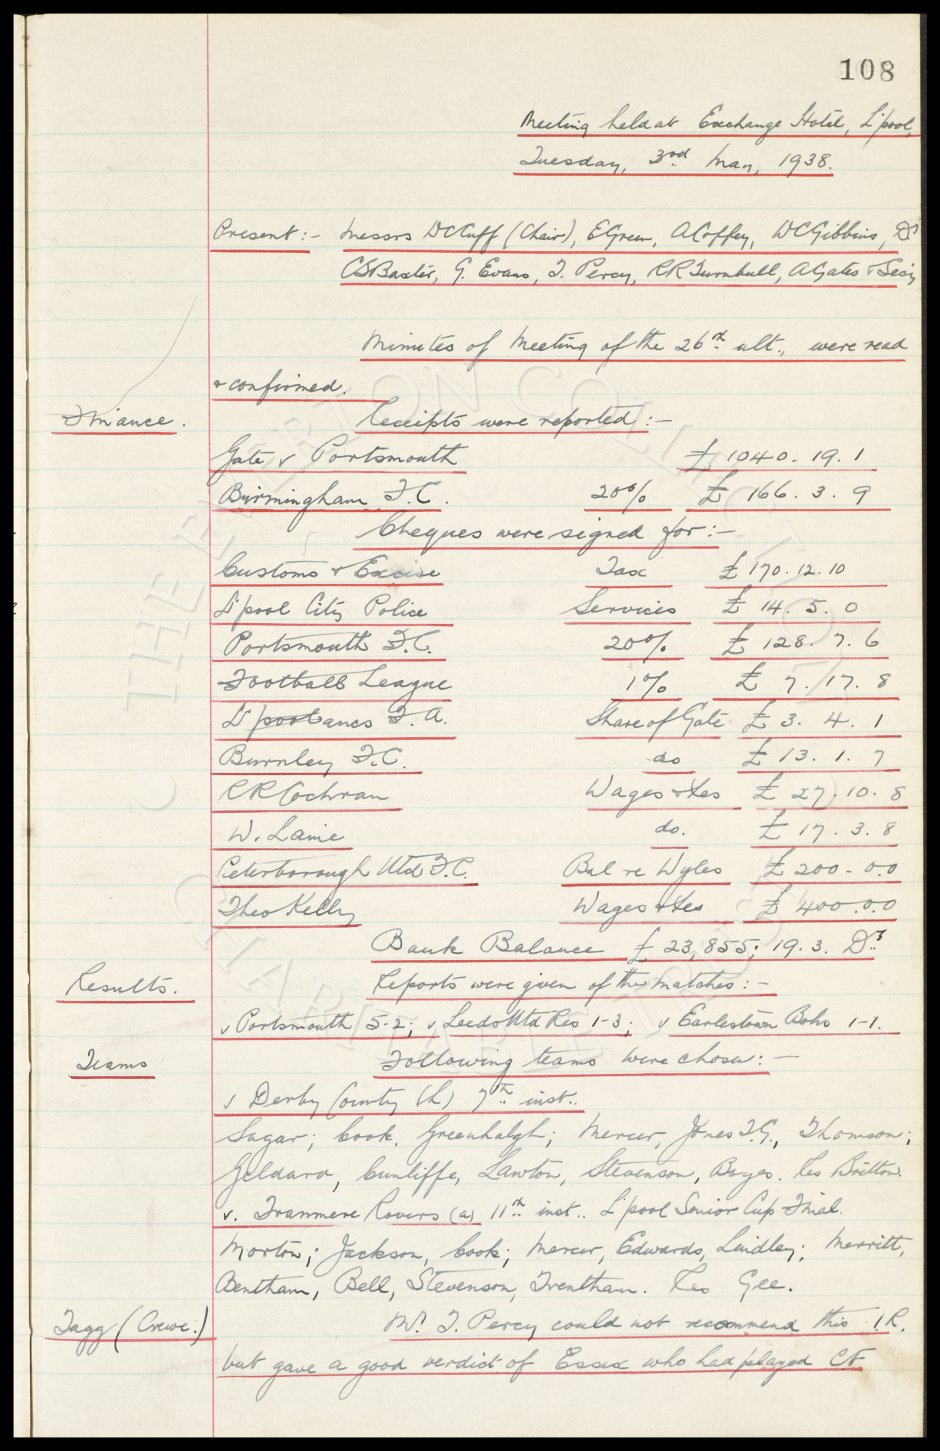 108
Meeting held at Exchange Hotel, L'pool,
Tuesday, 3rd May, 1938.
Present:- Messrs WCCuff (Chair), EGreen, ACoffey, WCGibbins, Dr
CSBaxter, G. Evans, T. Percy, RRTurnbull, AGates & Secy
Minutes of Meeting of the 26th ult., were read
& confirmed.
Finance. Receipts were reported:-
Gate v Portsmouth £1040. 19. 1
Birmingham F.C. 20% £ 166. 3. 9
Cheques were signed for:-
Customs & Excise Tax £170. 12. 10
L'pool City Police Services £ 14. 5. 0
Portsmouth F.C. 20% £ 128. 7. 6
Football League 1% £ 7. 17. 8
L'pool ancs F.A. Share of Gate £ 3. 4. 1
Burnley F.C. do £ 13. 1. 7
RRCochran Wages &Xes £ 27. 10. 8
W. Laine do. £ 17. 3. 8
Peterborough Utd F.C. Bal re Wyles £ 200-0.0
Theo Kelly Wages &Xes £ 400.0.0
Bank Balance £ 23,855; 19. 3. Dr
Results. Reports were given of the matches:-
v Portsmouth 5-2; v Leeds Utd Res 1-3; v Earlestown Bohs 1-1.
Teams Following teams were chosen:-
v Derby County (h) 7th inst..
Sagar; Cook, Greenhalgh; Mercer, Jones T.G., Thomson;
Geldard, Cunliffe, Lawton, Stevenson, Boyes. Res Britton.
v. Tranmere Rovers (a) 11th inst.. L'pool Senior Cup Final.
Morton; Jackson, Cook; Mercer, Edwards, Lindley; Merritt,
Bentham, Bell, Stevenson, Trentham. Res Gee.
Tagg (Crewe.) Mr. T. Percy could not recommend this I.R.
but gave a good verdict of Essex who had played CF
THE EVERTON COLLECTION
CHARITABLE TRUST